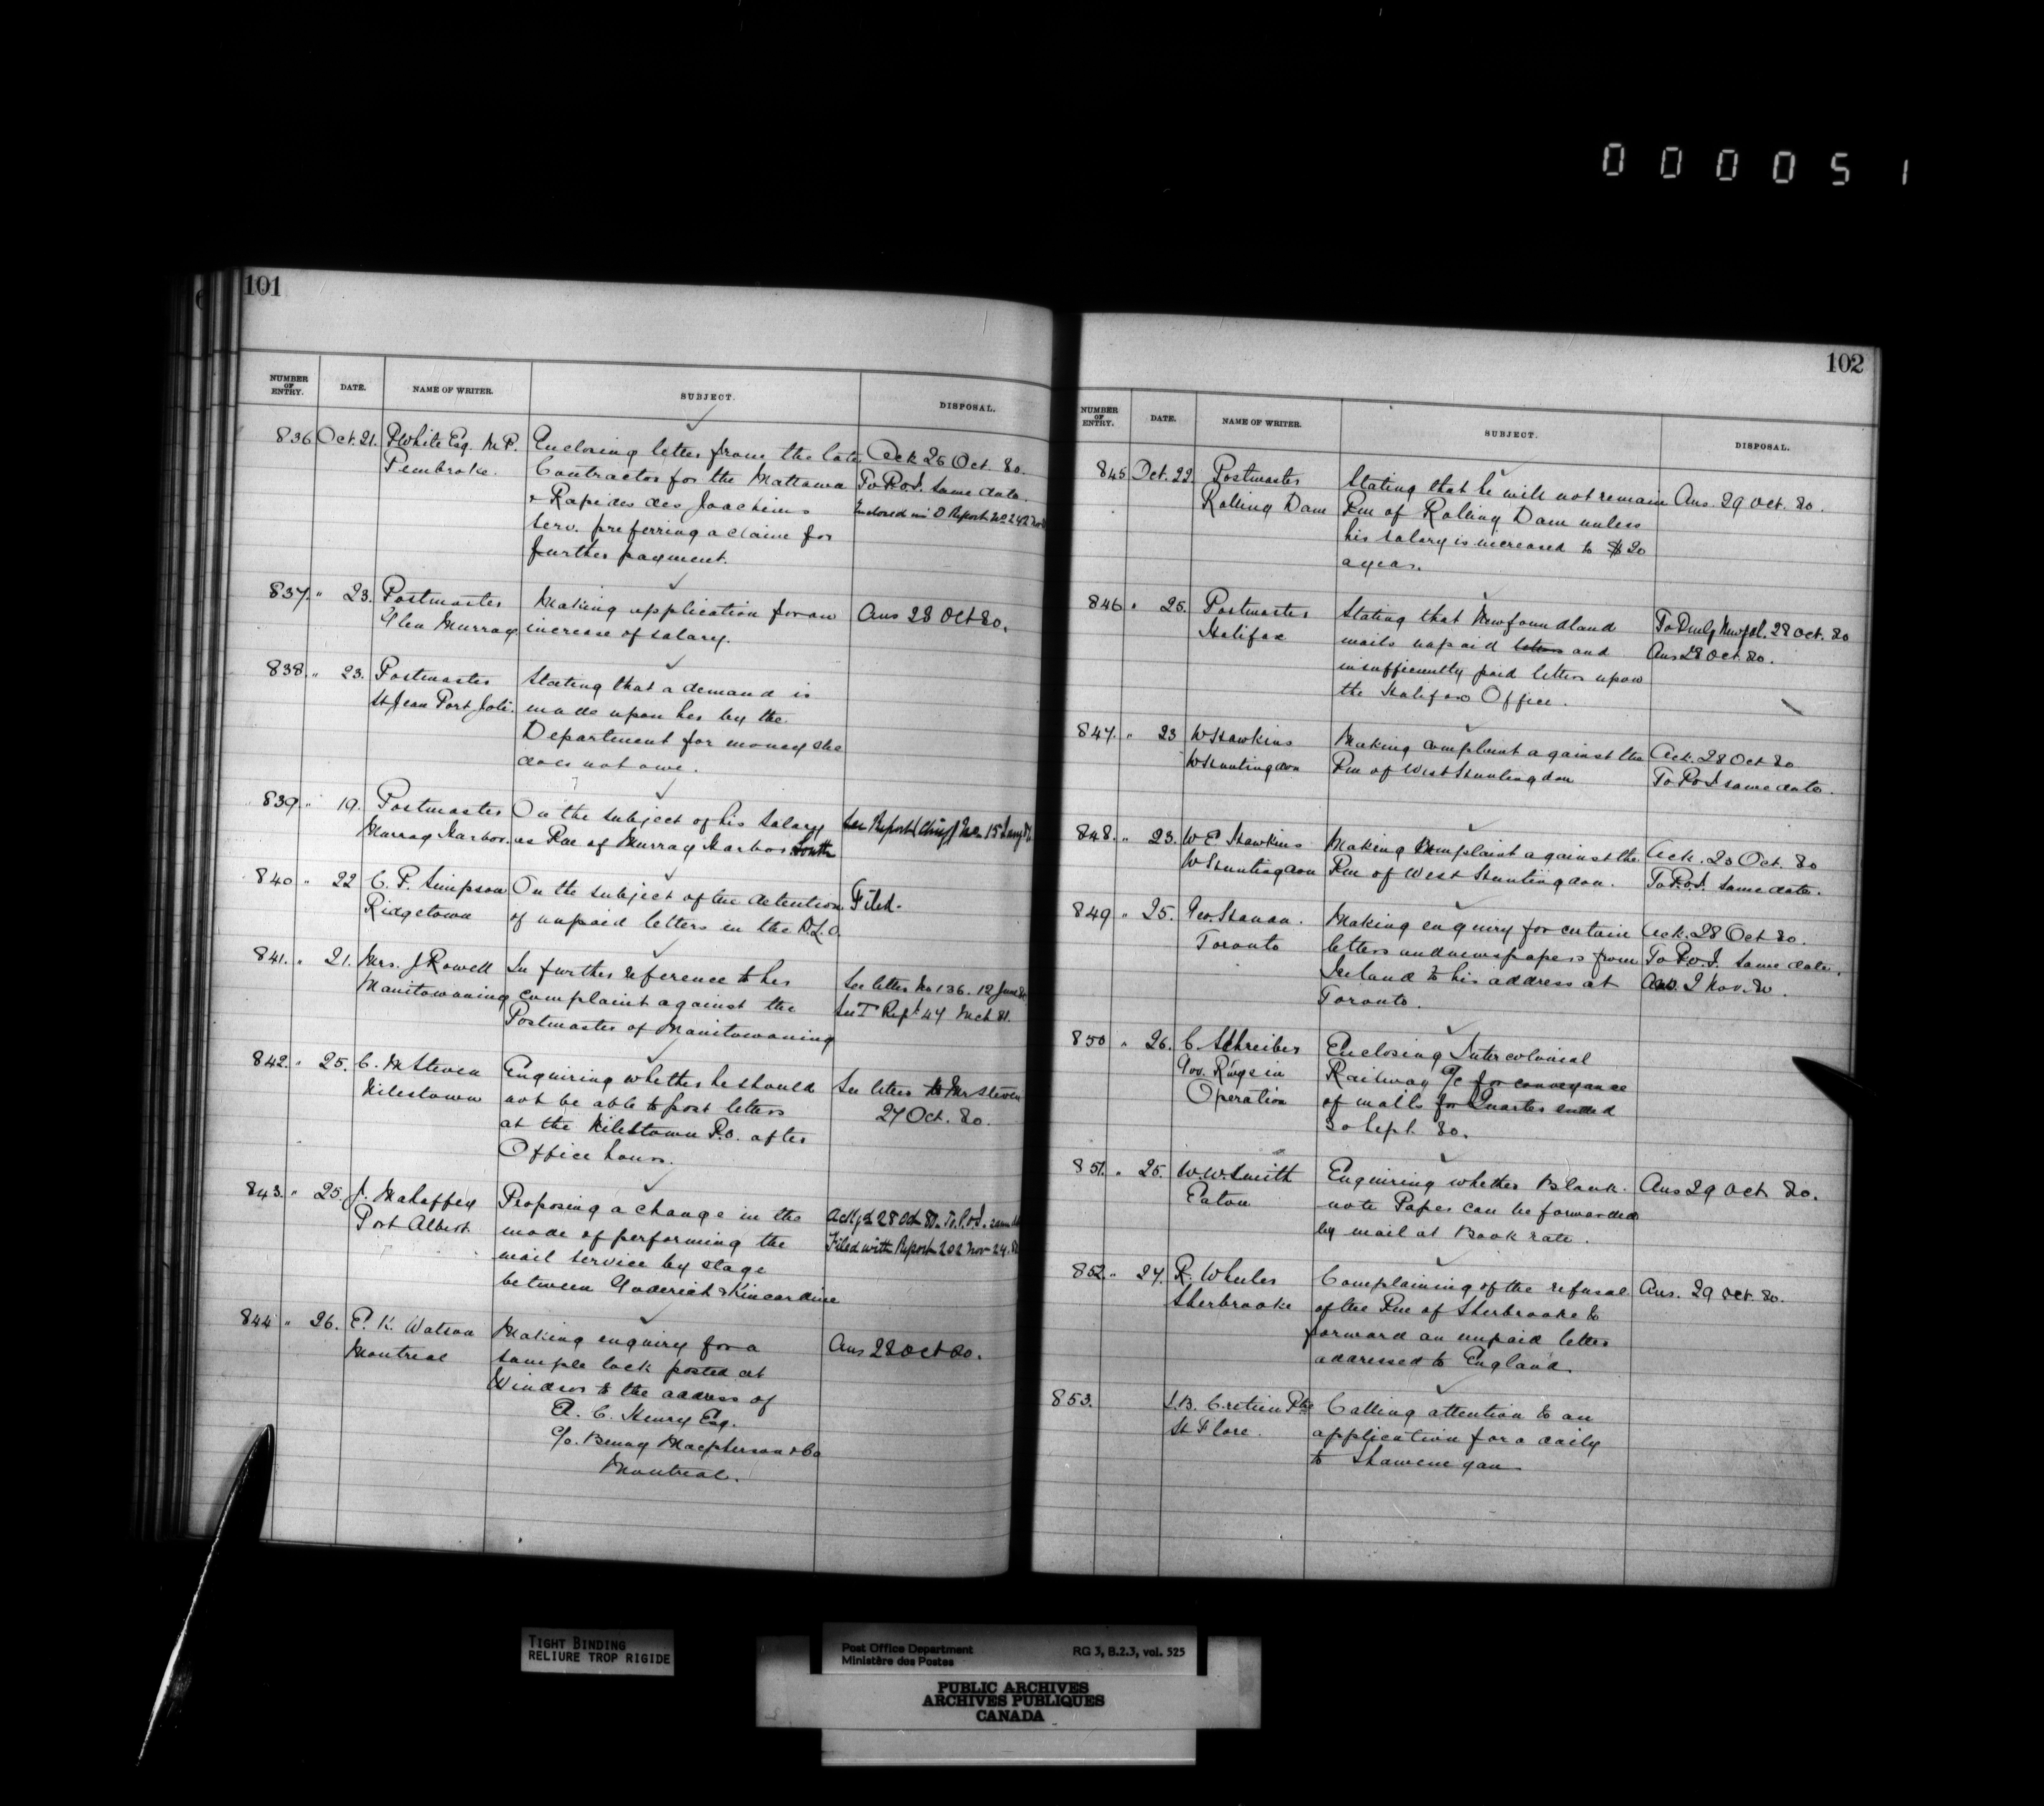 000051
101
NUMBER OF ENTRY. DATE. NAME OF WRITER. SUBJECT. DISPOSAL.
836 Oct. 21. P White Esq. M.P. Enclosing letter from the late Ack 26 Oct. 80.
Pembroke. Contractor for the Mattawa To P.O.I. same date.
& Rapides des Joachims Enclosed in D Report No 242
Serv. preferring a claim for
further payment.
837. " 23. Postmaster Making application for an Ans 28 Oct 80.
Glen Murray increase of salary.
838. " 23. Postmaster Stating that a demand is
St Jean Port Joli. made upon her by the
Department for money she
does not owe.
839. " 19. Postmaster On the subject of his Salary See Report (Chief)
Murray Harbor. as Pm of Murray Harbor South
840 " 22 C. P. Simpson On the subject of the detention Filed.
Ridgetown of unpaid letters in the D.L.O.
841. " 21. Mrs. J Rowell In further reference to her See letter No 136. 12 June 80
Manitowaning complaint against the See T Rept 47 Mch 81.
Postmaster of Manitowaning
842. " 25. C. McSteven Enquiring whether he should See letter to Mr Steven
Nilestown not be able to post letters 27 Oct. 80.
at the Nilestown P.O. after
Office hours.
843. " 25. J. Mahaffey Proposing a change in the Ackgd 28 Oct 80. To P.O.I. same dt
Port Albert. mode of performing the Filed with Report 202 Nov 24. 80
mail service by stage
between Goderich & Kincardine
844 " 26. E. K. Watson Making enquiry for a Ans 28 Oct 80.
Montreal sample lock posted at
Windsor to the address of
A. C. Henry Esq.
c/o. Benny Macpherson & Co
Montreal.
102
NUMBER OF ENTRY. DATE. NAME OF WRITER. SUBJECT. DISPOSAL.
845 Oct. 22 Postmaster Stating that he will not remain Ans. 29 Oct. 80.
Rolling Dam Pm of Rolling Dam unless
his salary is increased to $20
a year.
846 " 25. Postmaster Stating that Newfoundland To Newfld. 28 Oct. 80
Halifax mails unpaid letters and Ans 28 Oct. 80.
insufficiently paid letters upon
the Halifax Office.
847. " 23 W Hawkins Making complaint against the Ack. 28 Oct 80
W Huntingdon Pm of West Huntingdon To P.O.I same date.
848. " 23. W E Hawkins Making complaint against the Ack. 28 Oct. 80
W Huntingdon Pm of West Huntingdon. To P.O.I. same date.
849 " 25. Geo. Hanan. Making enquiry for certain Ack. 28 Oct 80.
Toronto letters and newspapers from To P.O.I. same date.
Ireland to his address at Ans. 2 Nov. 80.
Toronto.
850 " 26. C Schreiber Enclosing Intercolonial
Gov. Rwys in Railway a/c for conveyance
Operation of mails for Quarter ended
30 Sept. 80.
851. " 25. W. W. Smith Enquiring whether Blank Ans 29 Oct 80.
Eaton note Paper can be forwarded
by mail at Book rate.
852. " 27. R. Wheeler Complaining of the refusal Ans. 29 Oct. 80.
Sherbrooke of the Pm of Sherbrooke to
forward an unpaid letter
addressed to England.
853. J. B. Cretien Ptre Calling attention to an
St Flore. application for a daily
to Shawenegan
TIGHT BINDING
RELIURE TROP RIGIDE
Post Office Department RG 3, B.2.3, vol. 525
Ministère des Postes
PUBLIC ARCHIVES
ARCHIVES PUBLIQUES
CANADA